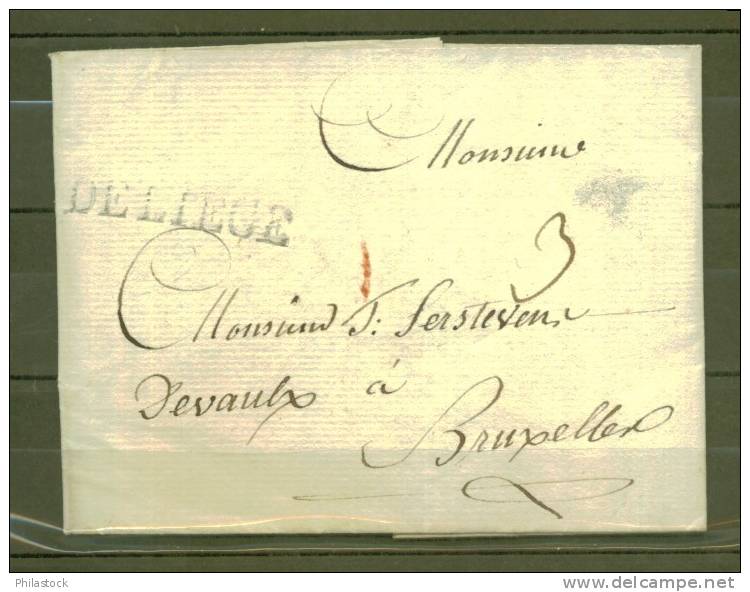 Monsieur
DE LIEGE
3
Monsieur T: Serstevens
Devaulx à
Bruxelles
Philastock
www.delcampe.net